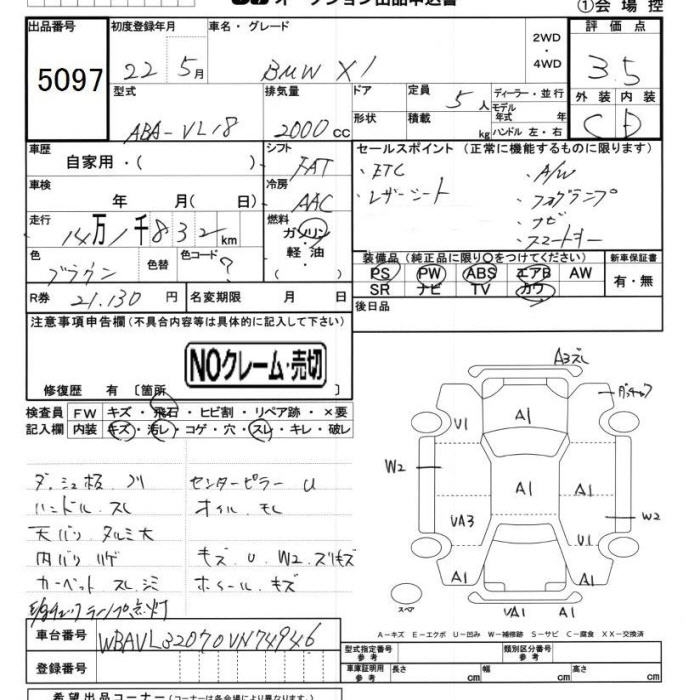 オークション出品申込書
①会場控
出品番号 初度登録年月 車名・グレード 評価点
5097 22年5月 BMW X1 2WD・4WD 3.5
型式 排気量 ドア 定員 ディーラー・並行 外装 内装
ABA-VL18 2000cc 形状 積載 5人 kg モデル年式 年 ハンドル 左・右 C D
車歴 自家用・( ) シフト FAT セールスポイント (正常に機能するものに限ります)
車検 年 月( 日) 冷房 AAC
・ETC ・A/W
・レザーシート ・フォグランプ
・ナビ
・スマートキー
走行 14万1千832km 燃料 ガソリン・軽・油( )
色 ブラウン 色替 色コード ?
装備品 (純正品に限り〇をつけてください) 新車保証書
PS PW ABS エアB AW 有・無
SR ナビ TV カワ
R券 21,130円 名変期限 月 日 後日品
注意事項申告欄 (不具合内容等は具体的に記入して下さい)
NOクレーム・売切
修復歴 有 〔箇所 〕
検査員記入欄 FW キズ・飛石・ヒビ割・リペア跡・×要
内装 キズ・汚レ・コゲ・穴・スレ・キレ・破レ
ダッシュ板 ノリ センターピラー U
ハンドル スレ オイル モレ
天バリ タルミ大
内バリ ハゲ キズ U W2 スリキズ
カーペット スレ シミ ホイール キズ
チェックランプ点灯
A3ズレ
U1 A1
W2 A1 A1 W2
VA3 U1
A1 A1
スペア VA1 A1
A-キズ E-エクボ U-凹み W-補修跡 S-サビ C-腐食 XX-交換済
車台番号 WBAVL32070VN74946
登録番号
型式指定番号 参考 類別区分番号 参考
車庫証明用 参考 長さ cm 幅 cm 高さ cm
希望出品コーナー (コーナーは各会場により異なります。)